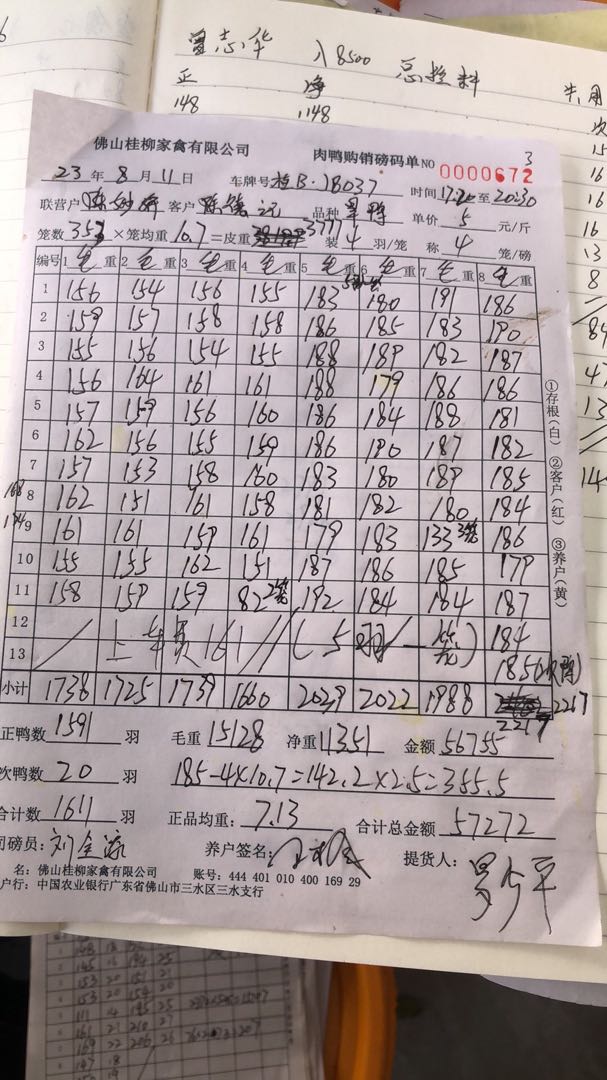 曾志华 入8500 总控料
正 净
148 148
佛山桂柳家禽有限公司 肉鸭购销磅码单 NO 0000672
23 年 8 月 11 日 车牌号 桂B·1B037 时间 17:20 至 20:30
联营户 客户 品种 单价 5 元/斤
笼数 353 ×笼均重 10.7 =皮重 3777 装 4 羽/笼 称 4 笼/磅
编号 1 毛重 2 毛重 3 毛重 4 毛重 5 毛重 6 毛重 7 毛重 8 毛重
1 156 154 156 155 183 180 191 186
2 159 157 158 158 186 185 183 190
3 155 156 154 155 188 189 182 187
4 156 164 161 161 188 179 186 186
5 157 159 156 160 186 184 188 181
6 162 156 155 159 186 190 187 182
7 157 153 158 160 183 180 189 185
8 162 151 161 158 181 182 180 184
9 161 161 159 161 179 183 133 3笼 186
10 155 155 162 151 187 186 185 179
11 158 159 159 82 2笼 192 184 184 187
12 上车费161 (5羽一笼) 184
13 185(次鸭)
小计 1738 1725 1739 1660 2029 2022 1988 2217
2217
①存根(白) ②客户(红) ③养户(黄)
正鸭数 1591 羽 毛重 15128 净重 11351 金额 56755
次鸭数 20 羽 185-4×10.7=142.2×2.5=355.5
合计数 1611 羽 正品均重: 7.13 合计总金额 57272
司磅员: 养户签名: 提货人:
名: 佛山桂柳家禽有限公司 账号: 444 401 010 400 169 29
户行: 中国农业银行广东省佛山市三水区三水支行